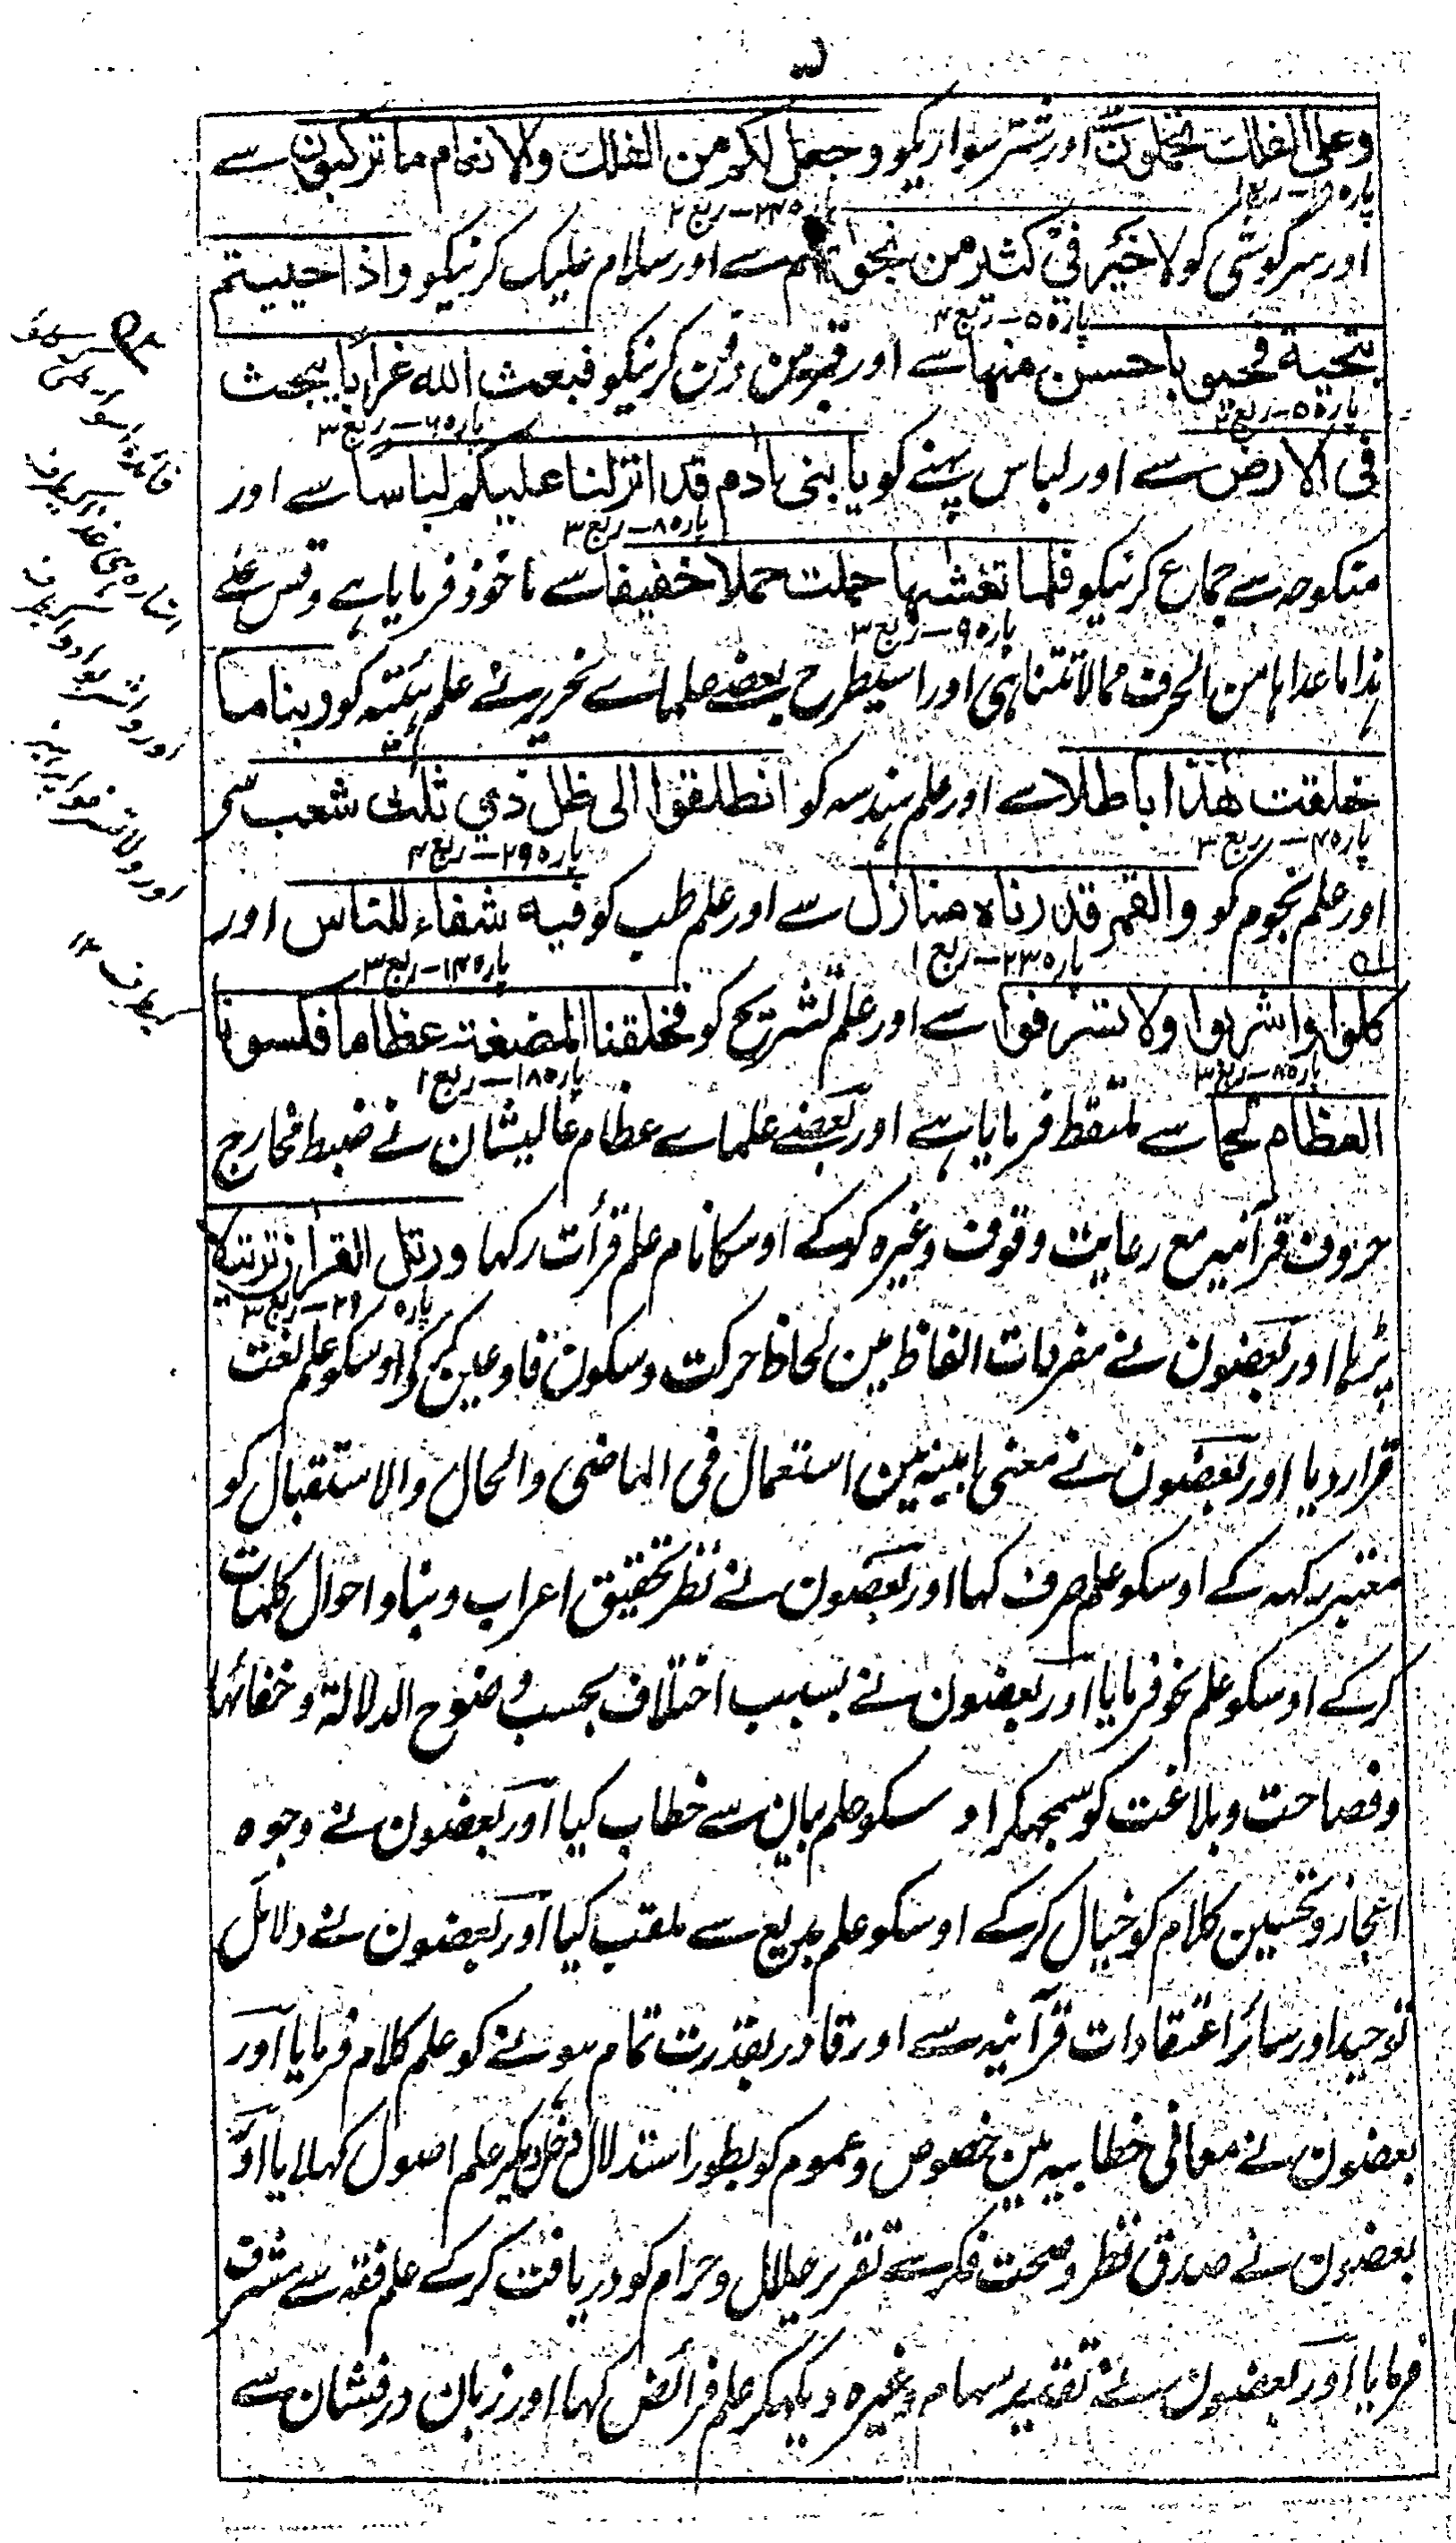 وعلی الفلک تحملون اور شتر سواریکو وجعل لکم من الفلک والانعام ما ترکبون سے
پاره ۲۵ – ربع ۲
اور سرگوشی کو لا خیر فی کثیر من نجواهم سے اور سلام علیک کرنیکو واذا حییتم
پاره ۵ – ربع ۴
بتحیة فحیوا باحسن منها سے اور قبر مین دفن کرنیکو فبعث الله غرابا یبحث
پاره ۵ – ربع
پاره ۶ – ربع ۳
فی الارض سے اور لباس پہنے کو یا بنی ادم قد انزلنا علیکم لباسا سے اور
پاره ۸ – ربع ۳
منکوحہ سے جماع کرنیکو فلما تغشها حملت حملا خفیفا سے ماخوذ فرمایا ہے وقس علے
پاره ۹ – ربع ۳
ہذا ما عداہا من الحرف ممالاتتناہی اور اسیطرح بعضے علماے نحریر نے علم ہیئتہ کو ربنا ما
خلقت هذا باطلا سے اور علم ہندسہ کو انطلقوا الی ظل ذی ثلث شعب سے
پاره ۴ – ربع ۳
پاره ۲۹ – ربع ۴
اور علم نجوم کو والقمر قدرناه منازل سے اور علم طب کو فیه شفاء للناس اور
پاره ۲۳ – ربع ۱
پاره ۱۴ – ربع ۳
کلوا واشربوا ولا تسرفوا سے اور علم تشریح کو فخلقنا المضغة عظاما فکسونا
پاره ۸ – ربع ۳
پاره ۱۸ – ربع ۱
العظام لحما سے ملتقط فرمایا ہے اور بعضے علماے عظام عالیشان نے ضبط مخارج
حروف قرآنیہ مع رعایت وقوف وغیرہ کرکے اوسکا نام علم قرأت رکہا ورتل القران ترتیلا
پاره ۲۹ – ربع ۳
پڑہا اور بعضون نے مفردات الفاظ مین لحاظ حرکت وسکون فا وعین کرکے اوسکو علم لغت
قرار دیا اور بعضون نے معنی ابنیہ مین استعمال فی الماضی والحال والاستقبال کو
معتبر رکہہ کے اوسکو علم صرف کہا اور بعضون نے نظر تحقیق اعراب وبنا واحوال کلمات
کرکے اوسکو علم نحو فرمایا اور بعضون نے بسبب اختلاف بحسب وضوح الدلالة وخفائہا
وفصاحت وبلاغت کو سمجہکر اوسکو علم بیان سے خطاب کیا اور بعضون نے وجوہ
اعجاز وتحسین کلام کو خیال کرکے اوسکو علم بدیع سے ملقب کیا اور بعضون نے دلائل
توحید اور سائر اعتقادات قرآنیہ سے اور قادر بقدرت تمام ہونے کو علم کلام فرمایا اور
بعضون نے معانی خطابیہ مین خصوص وعموم کو بطور استدلال دخل دیکر علم اصول کہلایا اور
بعضون نے صدق نظر وصحت فکر سے تقریر حلال وحرام کو دریافت کرکے علم فقہ سے مشرف
فرمایا اور بعضون نے تقدیر سہام وغیرہ دیکہکر علم فرائض کہا اور زبان درفشان سے